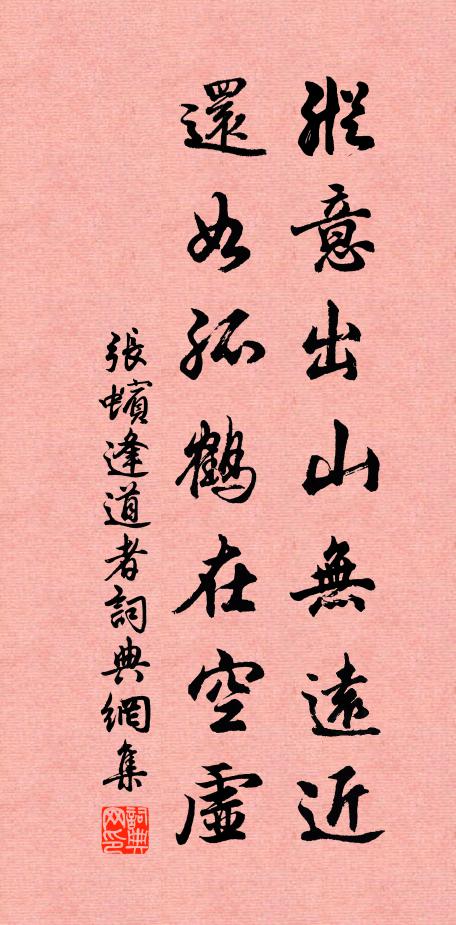 縱意出山無遠近
還如孤鶴在空虛
張蠙逢道者詞典網集
詞典网印